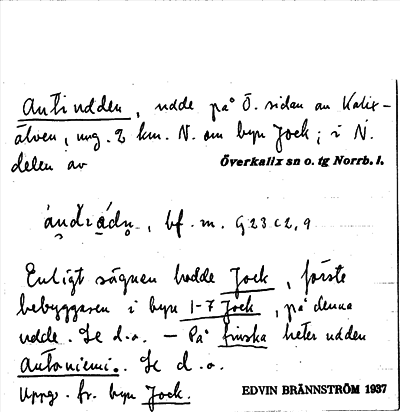 Antiudden, udde på Ö. sidan av Kalix-
älven, ung. 2 km. N. om byn Jock; i N.
delen av Överkalix sn o. tg Norrb. l.
bf. m. G23 C2, 9
Enligt sägnen hodde Jock, förste
bebyggaren i byn 1-7 Jock, på denna
udde. Se d.o. – På finska heter udden
Antoniemi. Se d.o.
Uppg. fr. byn Jock. EDVIN BRÄNNSTRÖM 1937